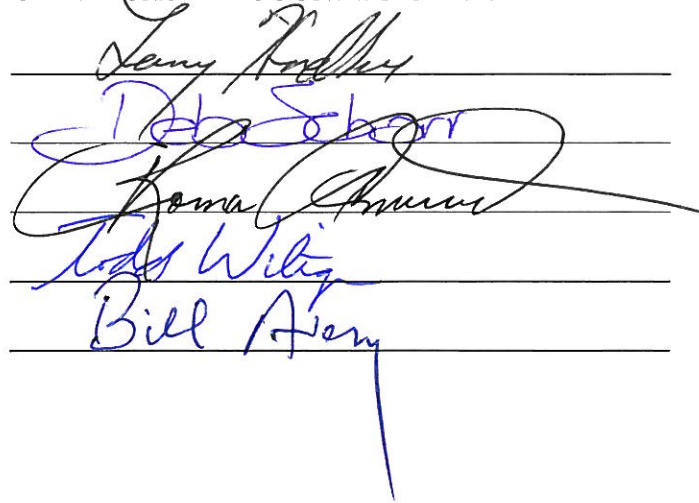 Larry Hudkins
Deb Schorr
Roma Amundson
Todd Wiltgen
Bill Avery